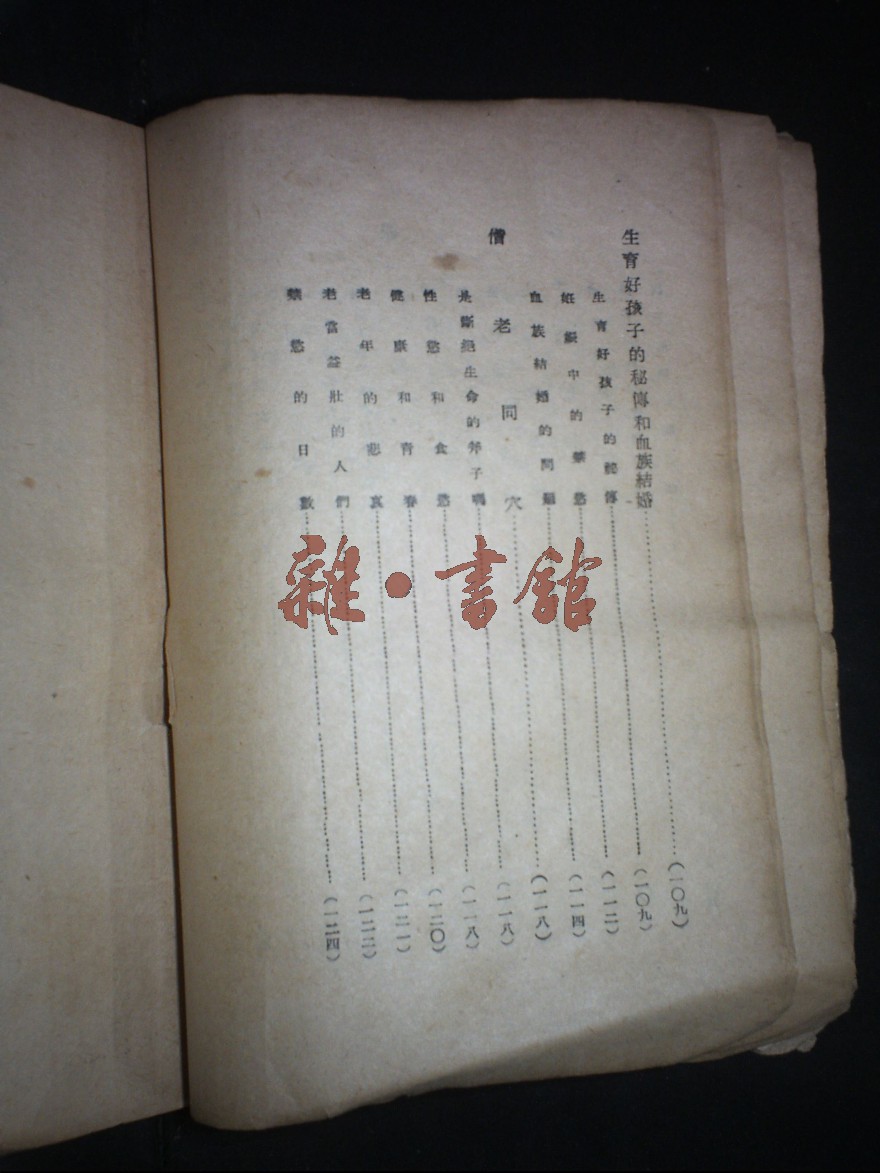 生育好孩子的秘傳和血族結婚……(一〇九)
生育好孩子的秘傳……(一〇九)
妊娠中的禁慾……(一一二)
血族結婚的問題……(一一四)
偕老同穴……(一一八)
是斷絕生命的斧子嗎……(一一八)
性慾和食慾……(一一八)
健康和青春……(一二〇)
老年的悲哀……(一二一)
老當益壯的人們……(一二二)
禁慾的日數……(一二四)
雜·書館